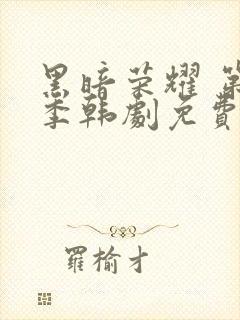 黑暗荣耀 第
季韩劇免費
羅榆才